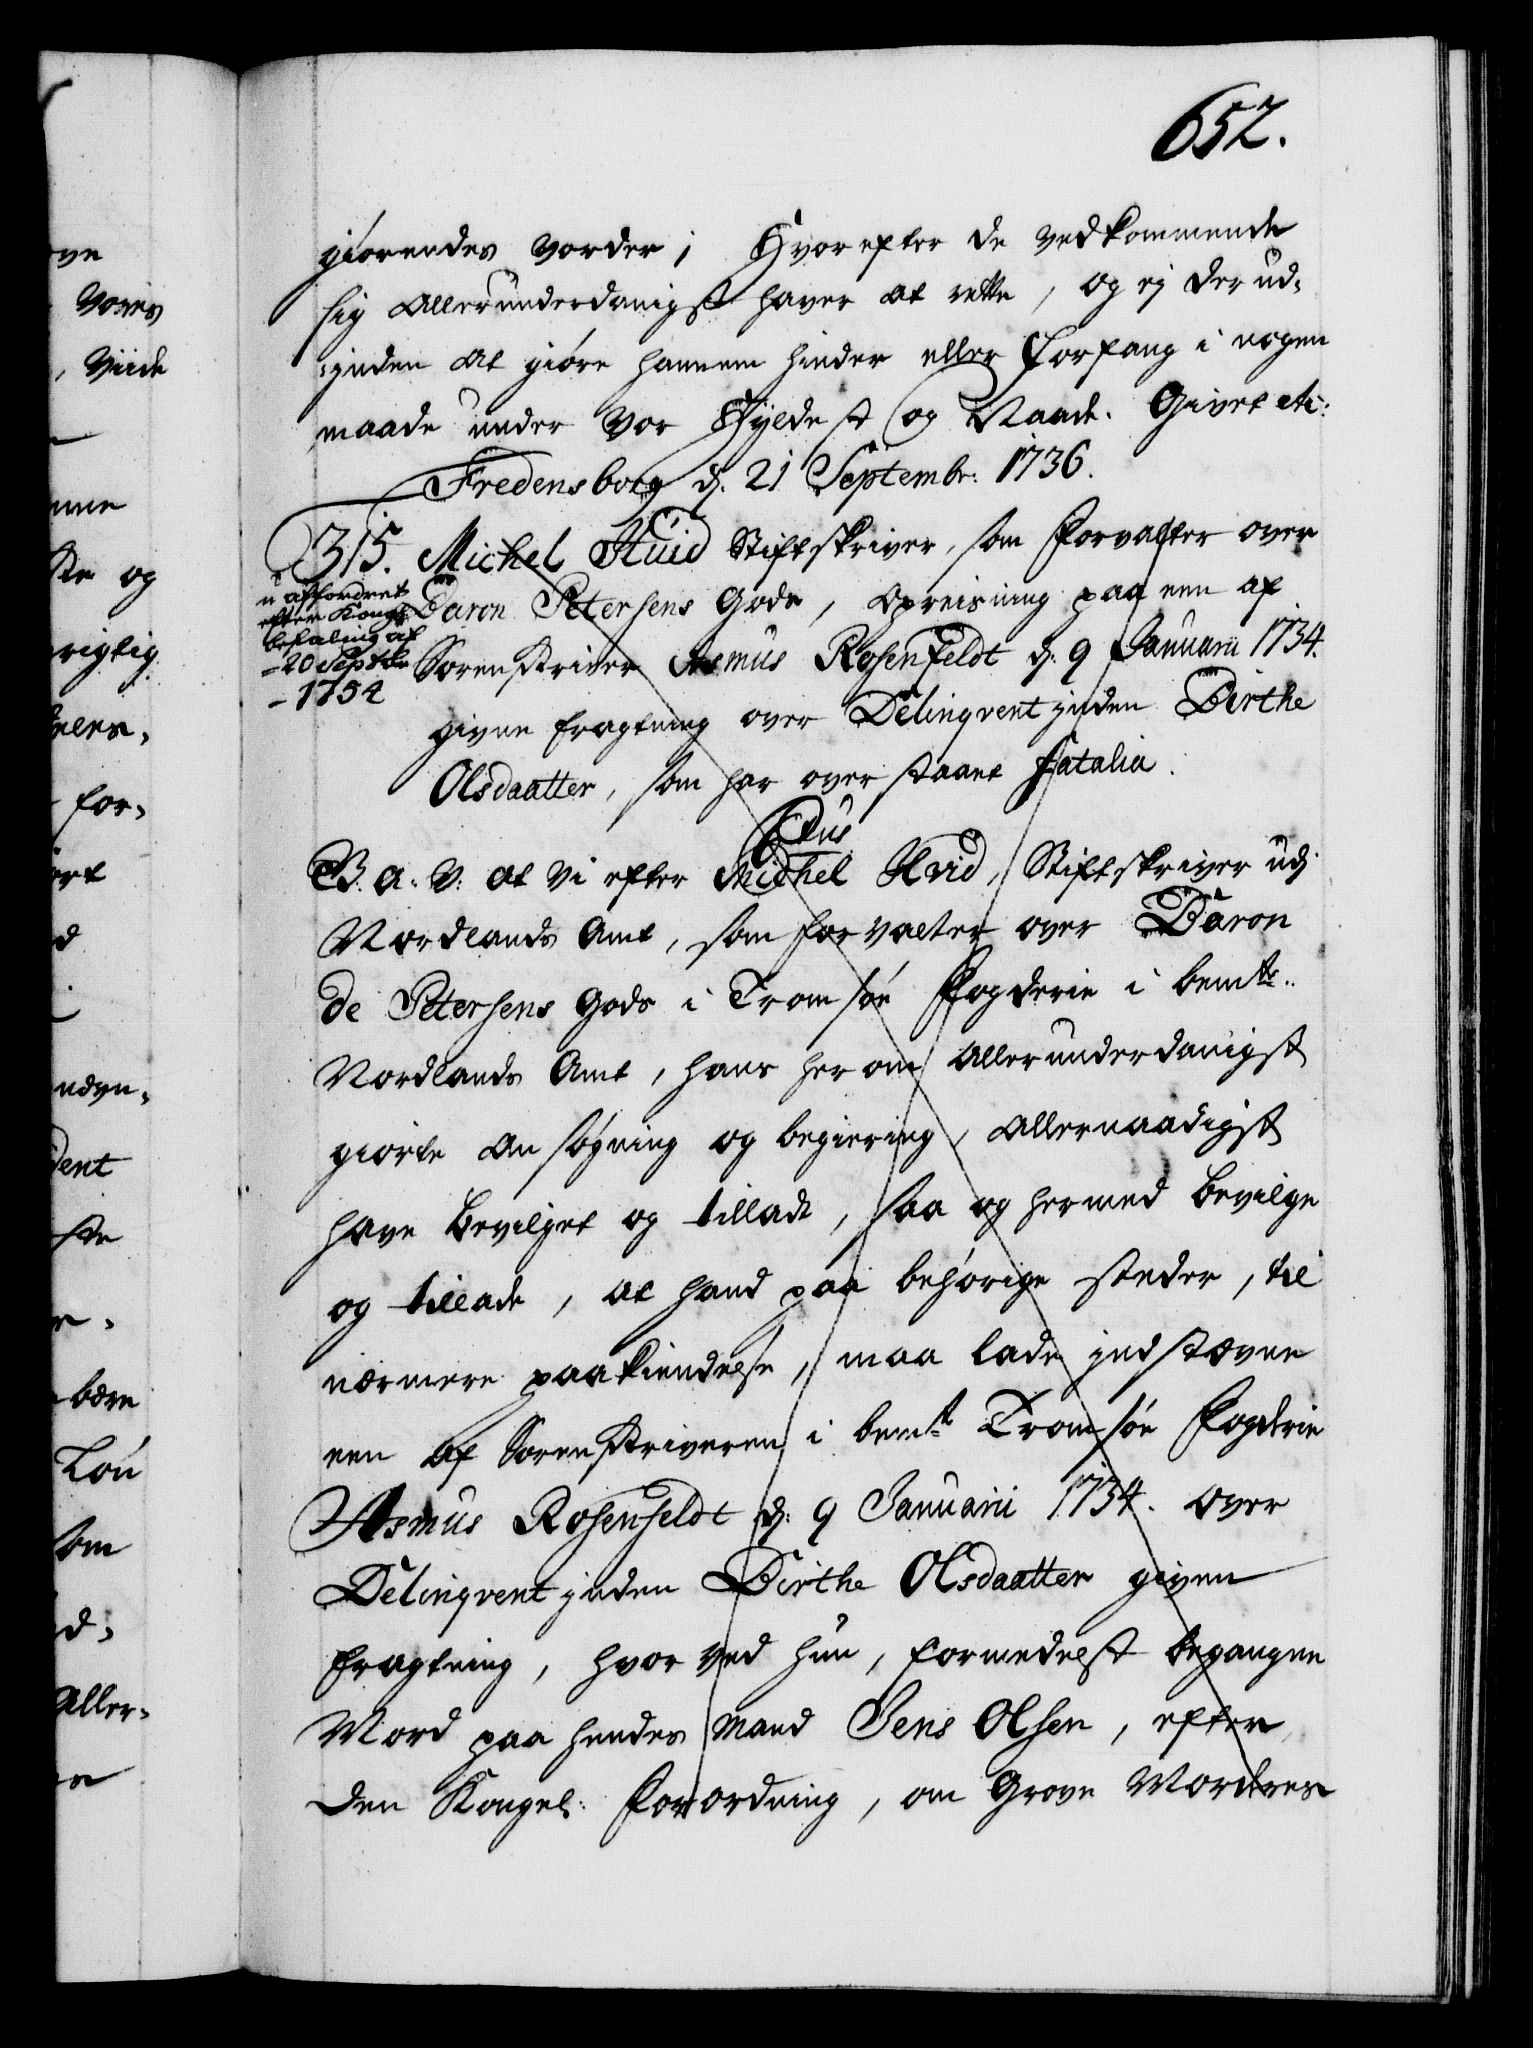 652.
giørendes vorder; Hvorefter de vedkommende
sig allerunderdanigst haver at rette, og ej derud-
-inden at giøre hannem hinder eller Forfang i nogen
maade under vor Hyldest og Naade. Givet etc:
Fredensborg d. 21 Septembr: 1736.
315. Michel Huid Stiftskriver, som Forvalter over
u-affordret
efter Kongl
befaling af
- 20 Septbr
- 1754
Baron Petersens Gods, Opreisning paa een af
Sorenskriver Asmus Rosenfeldt d. 9 Januarii 1734.
given fragtning over Delinqventinden Birthe
Olsdaatter, som har overstaaet Fatalia.
G. A. V: at Vi efter Michel Hvid, Stiftskriver udj
Nordlands Amt, som forvalter over Baron
de Petersens Gods i Tromsøe Fogderie i bemte
Nordlands Amt, hans herom allerunderdanigst
giorte ansøgning og begiering, allernaadigst
have bevilget og tilladt, saa og hermed bevilge
og tillade, at hand paa behørige steder, til
nærmere paakiendelse, maa lade indstævne
een af Sorenskriveren i bemte Tromsøe Fogderie
Asmus Rosenfeldt d: 9 Januarii 1734. over
Delinqventinden Birthe Olsdaatter given
fragtning, hvorved hun, formedelst begangne
Mord paa hendes Mand Jens Olsen, efter
den Kongel: Forordning, om Grove Morderes